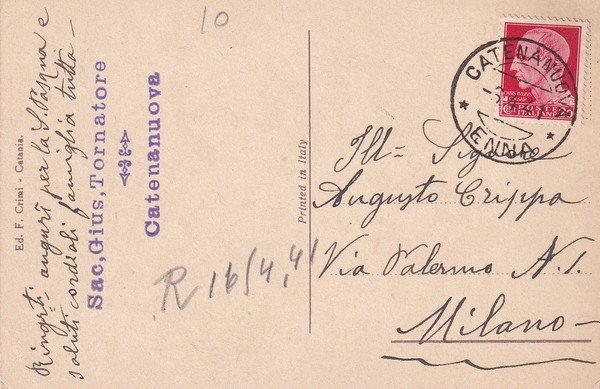 10
Ed. F. Crimi - Catania.
Ring.ti auguri per la S. Pasqua e
saluti cordiali famiglia tutta -
Sac, Gius, Tornatore
Catenanuova
R 16/4,41
Printed in Italy
CATENANUOVA
ENNA
POSTE ITALIANE
20
Ill= Signore
Augusto Crippa
Via Palermo N. 1.
Milano -